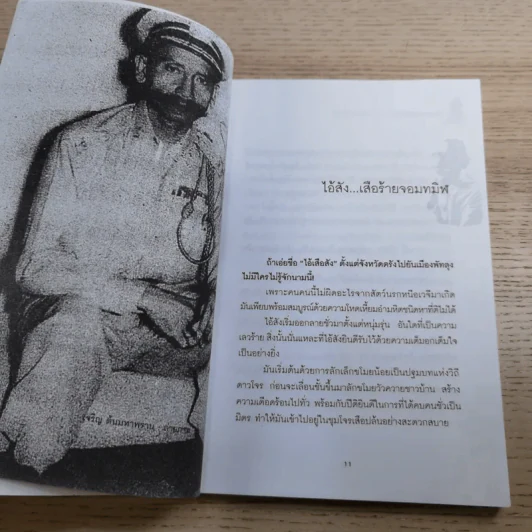 ไอ้สัง...เสือร้ายจอมทมิฬ
ถ้าเอ่ยชื่อ "ไอ้เสือสัง" ตั้งแต่จังหวัดตรังไปยันเมืองพัทลุง
ไม่มีใครไม่รู้จักนามนี้
เพราะคนคนนี้ไม่ผิดอะไรจากสัตว์นรกหนีอเวจีมาเกิด
มันเพียบพร้อมสมบูรณ์ด้วยความโหดเหี้ยมอำมหิตชนิดหาที่ติไม่ได้
ไอ้สังเริ่มออกลายชั่วมาตั้งแต่หนุ่มรุ่น อันใดที่เป็นความ
เลวร้าย สิ่งนั้นนั่นแหละที่ไอ้สังยินดีรับไว้ด้วยความเต็มอกเต็มใจ
เป็นอย่างยิ่ง
มันเริ่มต้นด้วยการลักเล็กขโมยน้อยเป็นปฐมบทแห่งวิถี
ดาวโจร ก่อนจะเลื่อนชั้นขึ้นมาลักขโมยวัวควายชาวบ้าน สร้าง
ความเดือดร้อนไปทั่ว พร้อมกับปีติยินดีในการที่ได้คบคนชั่วเป็น
มิตร ทำให้มันเข้าไปอยู่ในชุมโจรเสือปล้นอย่างสะดวกสบาย
เจริญ ตันมหาพราน
11